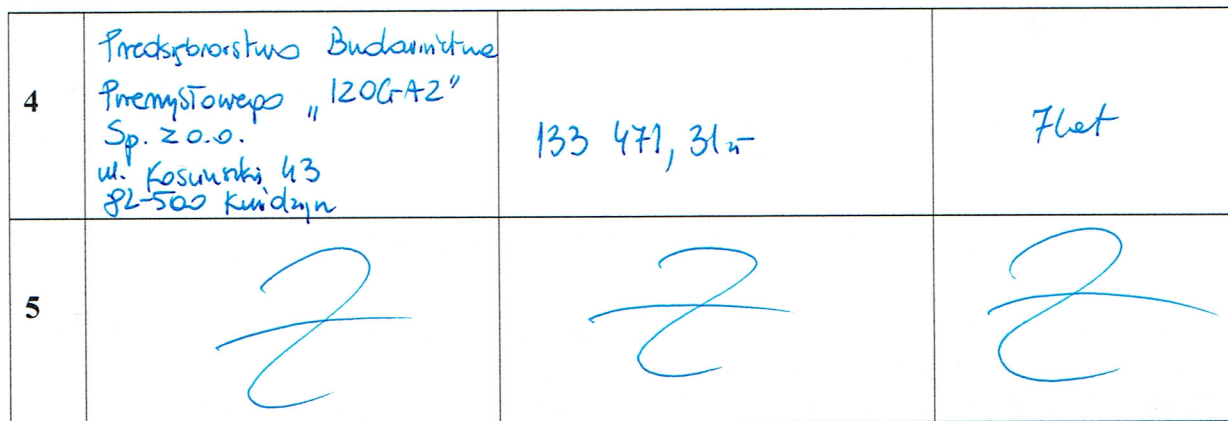 4
Przedsębiorstwo Budownictwa
Przemysłowego „IZOGAZ”
Sp. z o.o.
ul. 43
82-500 Kwidzyn
133 471,31 zł
7 lat
5